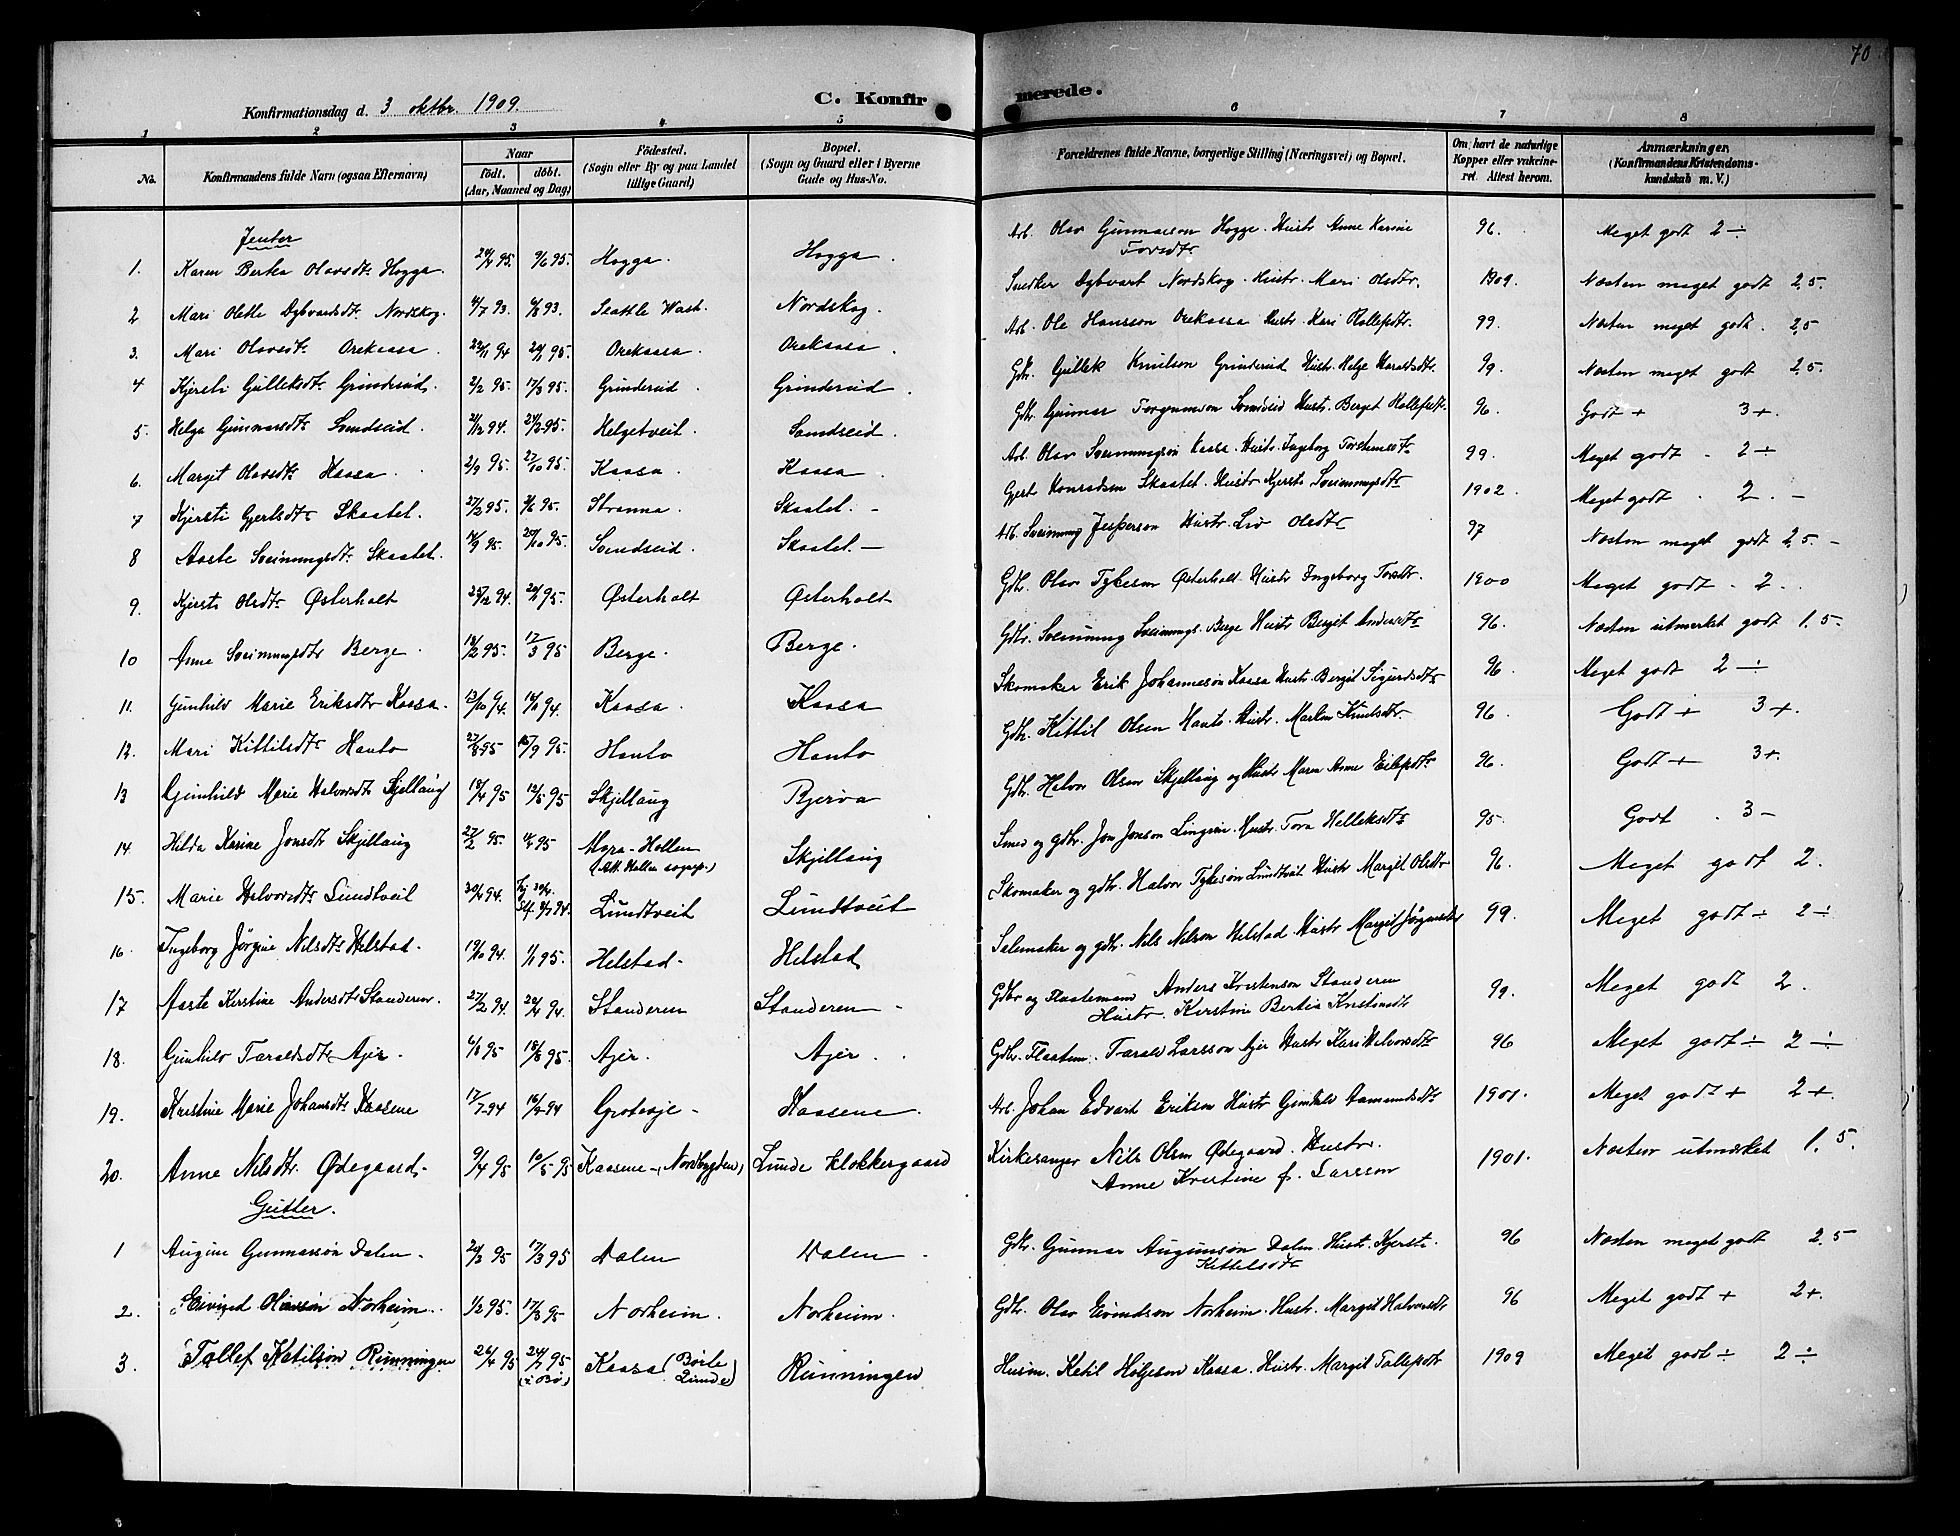 70
Konfirmationsdag d. 3 oktbr. 1909.
C. Konfirmerede.
1 2 3 4 5 6 7 8
No. Konfirmandens fulde Navn (ogsaa Efternavn) Naar født. døbt. (Aar, Maaned og Dag) Fødested. (Sogn eller By og paa Landet tillige Gaard) Bopæl. (Sogn og Gaard eller i Byerne Gade og Hus-No. Forældrenes fulde Navne, borgerlige Stilling (Næringsvei) og Bopæl. Om havt de naturlige Kopper eller vakcineret. Attest herom. Anmærkninger. (Konfirmandens Kristendomskundskab m. V.)
Jenter
1. Karen Berthe Olavsdtr Hogga. 24/4 95. 9/6 95. Hogga. Hogga. Arb. Olav Gunnarson Hogge. Hustr. Anne Karine Torsdtr 96. Meget godt 2÷
2 Mari Olette Dybvardsdtr Nordskog. 4/7 93. 6/8 93. Seattle Wash. Nordskog. Snedker Dybvart Nordskog. Hustr. Mari Olsdtr. 1909. Næsten meget godt 2,5.
3. Mari Olavsdtr Orekaasa. 22/11 94 20/1 95. Orekaasa. Orekaasa. Arb. Ole Hansson Orekaasa Hustr. Kari Rollefsdtr. 99. Næsten meget godt. 2,5
4 Kjersti Gulleksdtr Grinderud. 2/2 95. 17/3 95. Grinderud. Grinderud. Gdr. Gullek Knutson Grinderud Hustr. Helge Haraldsdtr. 99. Næsten meget godt 2,5.
5. Helga Gunnarsdtr Sondseid. 21/12 94. 24/2 95. Helgetveit. Sondseid. Gdr. Gunnar Torgrimson Sondseid Hustr. Berget Rollefsdtr. 96. Godt + 3+.
6. Margit Olavsdtr Kaasa. 2/9 95. 27/10 95. Kaasa. Kaasa. Arb. Olav Sveinungson Kaasa. Hustr. Ingeborg Torstensdtr 99. Meget godt. 2÷
7 Kjersti Gjertsdtr Skaatel. 27/2 95. 4/6 95. Stranna. Skaatel. - Gjert Konradsen Skaatel. Hustr Kjersti Sveinungsdtr 1902. Meget godt. 2. -
8 Aaste Sveinungsdtr Skaatel. 14/9 95. 20/10 95. Sondseid. Skaatel. - Arb. Sveinung Jesperson Hustr. Liv Olsdtr 97 Næsten meget godt 2,5. -
9. Kjersti Olsdtr Østerholt 25/12 94. 20/1 95. Østerholt Østerholt Gdr. Olav Tykeson Østerholt. Hustr Ingeborg Torsdtr. 1900 Meget godt. 2.
10 Anne Sveinungsdtr Berge. 12/2 95. 17/3 95 Berge. Berge. Gdr. Sveinung Sveinungs. Berge Hustr Bergit Andersdtr 96. Næsten utmerket godt 1,5.
11. Gunhild Marie Eriksdtr Kaasa. 13/10 94. 14/1 94. Kaasa. Kaasa Skomaker Erik Johanneson Kaasa Hustr. Bergit Sigurdsdtr 96. Meget godt 2÷
12. Mari Kittilsdtr Hanto 27/8 95 15/9 95. Hanto Hanto Gdr. Kittil Olsen Hanto. Hustr. Marten Knutsdtr. 96. Godt + 3+.
13 Gunhild Marie Halvorsdtr Skjellaug 19/4 95 12/5 95 Skjellaug Bjerva Gdr. Halvor Olsen Skjellaug og Hustr Maren Anne Eilefsdtr 96. Godt + 3+.
14. Hilda Karine Jonsdtr Skjellaug 27/2 95. 14/4 95 Myra-Hollen (Att. Hollen sogepr.) Skjellaug Smed og gdr. Jon Jonson Lingsvei. Hustr. Tora Helleksdtr 95. Godt. 3-
15. Marie Halvorsdtr Lundtveit 30/4 94. Hj 30/4. Stf. 8/7 94. Lundtveit Lundtveit Skomaker og gdr. Halvor Tykeson Lundtveit Hustr Margit Olsdtr 96. Meget godt 2.
16 Ingeborg Jørgine Nilsdtr Helstad. 19/10 94. 1/1 95. Helstad. Helstad Salemaker og gdr. Nils Nilson Helstad. Hustr Margit Jørgensdtr 99. Meget godt÷ 2÷
17 Aaste Kirstine Andersdtr Standeren. 27/2 94. 22/4 94. Standeren Standeren - Gdbr og Flaatemand Anders Kristenson Standeren Hustr. Kirstine Bertea Kristensdtr 99. Meget godt 2.
18. Gunhild Taraldsdtr Ajer. 6/8 95 18/8 95. Ajer. Ajer. Gdr. Flaatem. Tarald Larsson Ajer Hustr Kari Halvorsdtr 96 Meget godt÷ 2÷
19. Kristine Marie Johansdtr Kaasene 17/7 94 16/9 94 Grotvsje- Kaasene. Arb. Johan Edvart Erikson Hustr Gunhild Aamundsdtr 1901. Meget godt + 2+.
20. Anne Nilsdtr. Ødegaard. 9/4 95 12/5 95 Kaasene-(Nordbygden) Lunde Klokkergaard Kirkesanger Nils Olsen Ødegaard. Hustr. Anne Kirstine f. Larsson 1901. Næsten utmerket 1,5.
Gutter.
1 Augun Gunnarson Dalen. 20/2 95 17/3 95 Dalen Dalen. Gdr. Gunnar Augunson Dalen. Hustr. Kjersti Kittilsdtr 96 Næsten meget godt 2,5
2. Eivind Olavson Norheim. 1/2 95. 17/3 95 Norheim. Norheim. Gdr. Olav Eivindson Norheim. Hustr. Margit Halvorsdtr 96 Meget godt + 2+.
3. Tollef Ketilson Runningen 26/4 95 24/7 95 (i Bø) Kaasa (Børte Lunde) Runningen Husm. Ketil Holjeson Kaasa. Hustr. Margit Tollefsdtr 1909 Meget godt ÷ 2÷